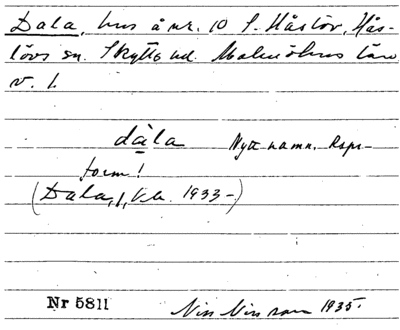 Dala, hus å nr. 10 S. Håslöv, Hås-
lövs sn. Skytts hd. Malmöhus län
v. 1.
dàla Nytt namn. Rspr-
form!
(Dala, 1, 1933-)
Nr 5811 Nils Nilsson 1935.